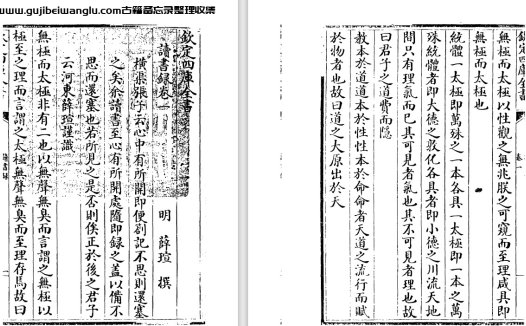 www.gujibeiwanglu.com古籍备忘录整理收集
欽定四庫全書
讀書錄卷一
明 薛瑄 撰
橫渠張子云心中有所開即便劄記不思則還塞
之矣余讀書至心有所開處隨即録之蓋以備不
思而還塞也若所見之是否則俟正於後之君子
云河東薛瑄謹識
無極而太極非有二也以無聲無臭而言謂之無極以
極至之理而言謂之太極無聲無臭而至理存焉故曰
欽定四庫全書
卷一
無極而太極以性觀之無兆朕之可窺而至理咸具即
無極而太極也
統體一太極即萬殊之一本各具一太極即一本之萬
殊統體者即大德之敦化各具者即小德之川流天地
間只有理氣而已其可見者氣也其不可見者理也故
曰君子之道費而隱
教本於道道本於性性本於命命者天道之流行而賦
於物者也故曰道之大原出於天